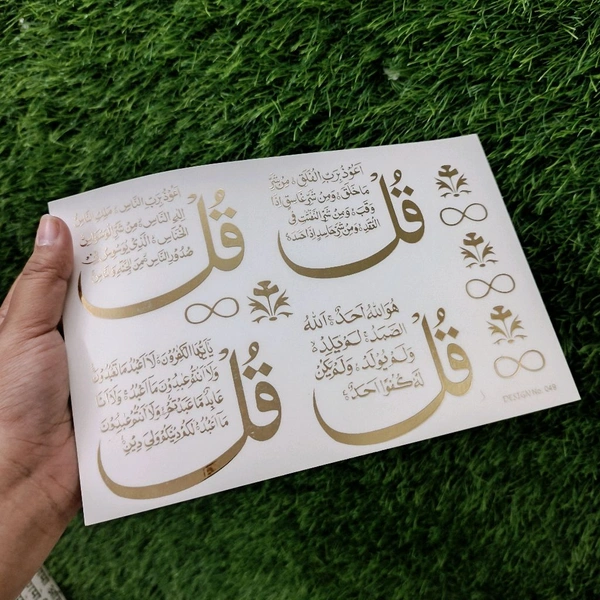 قُل
اَعُوْذُ بِرَبِّ الْفَلَقِ مِنْ شَرِّ
مَا خَلَقَ وَمِنْ شَرِّ غَاسِقٍ اِذَا
وَقَبَ وَمِنْ شَرِّ النَّفّٰثٰتِ فِی
الْعُقَدِ وَمِنْ شَرِّ حَاسِدٍ اِذَا حَسَدَ
قُل
اَعُوْذُ بِرَبِّ النَّاسِ مَلِكِ النَّاسِ
اِلٰهِ النَّاسِ مِنْ شَرِّ الْوَسْوَاسِ
الْخَنَّاسِ الَّذِیْ یُوَسْوِسُ فِیْ
صُدُوْرِ النَّاسِ مِنَ الْجِنَّةِ وَالنَّاسِ
قُل
هُوَاللّٰهُ اَحَدٌ اَللّٰهُ
الصَّمَدُ لَمْ يَلِدْ
وَلَمْ يُوْلَدْ وَلَمْ يَكُنْ
لَّهٗ كُفُوًا اَحَدٌ
قُل
يٰاَيُّهَا الْكٰفِرُوْنَ لَا اَعْبُدُ مَا تَعْبُدُوْنَ
وَلَا اَنْتُمْ عٰبِدُوْنَ مَا اَعْبُدُ وَلَا اَنَا
عَابِدٌ مَّا عَبَدْتُّمْ وَلَا اَنْتُمْ عٰبِدُوْنَ
مَا اَعْبُدُ لَكُمْ دِيْنُكُمْ وَلِيَ دِيْنِ
DESIGN No. 048